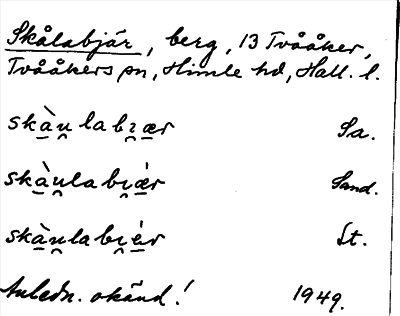 Skålabjär, berg, 13 Tvååker,
Tvååkers sn, Himle hd, Hall. l.
skàu̯labɪ̯ær Sa.
skàu̯labɪ̯ǽr Sand.
skàu̯labɪ̯ér St.
Anledn. okänd!
1949.